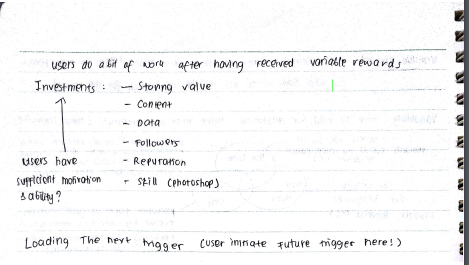 users do a bit of work after having received variable rewards
Investments : - Storing value
- Content
- Data
- Followers
users have - Reputation
sufficient motivation - skill (photoshop)
& ability?
Loading The next trigger (user initiate future trigger here!)